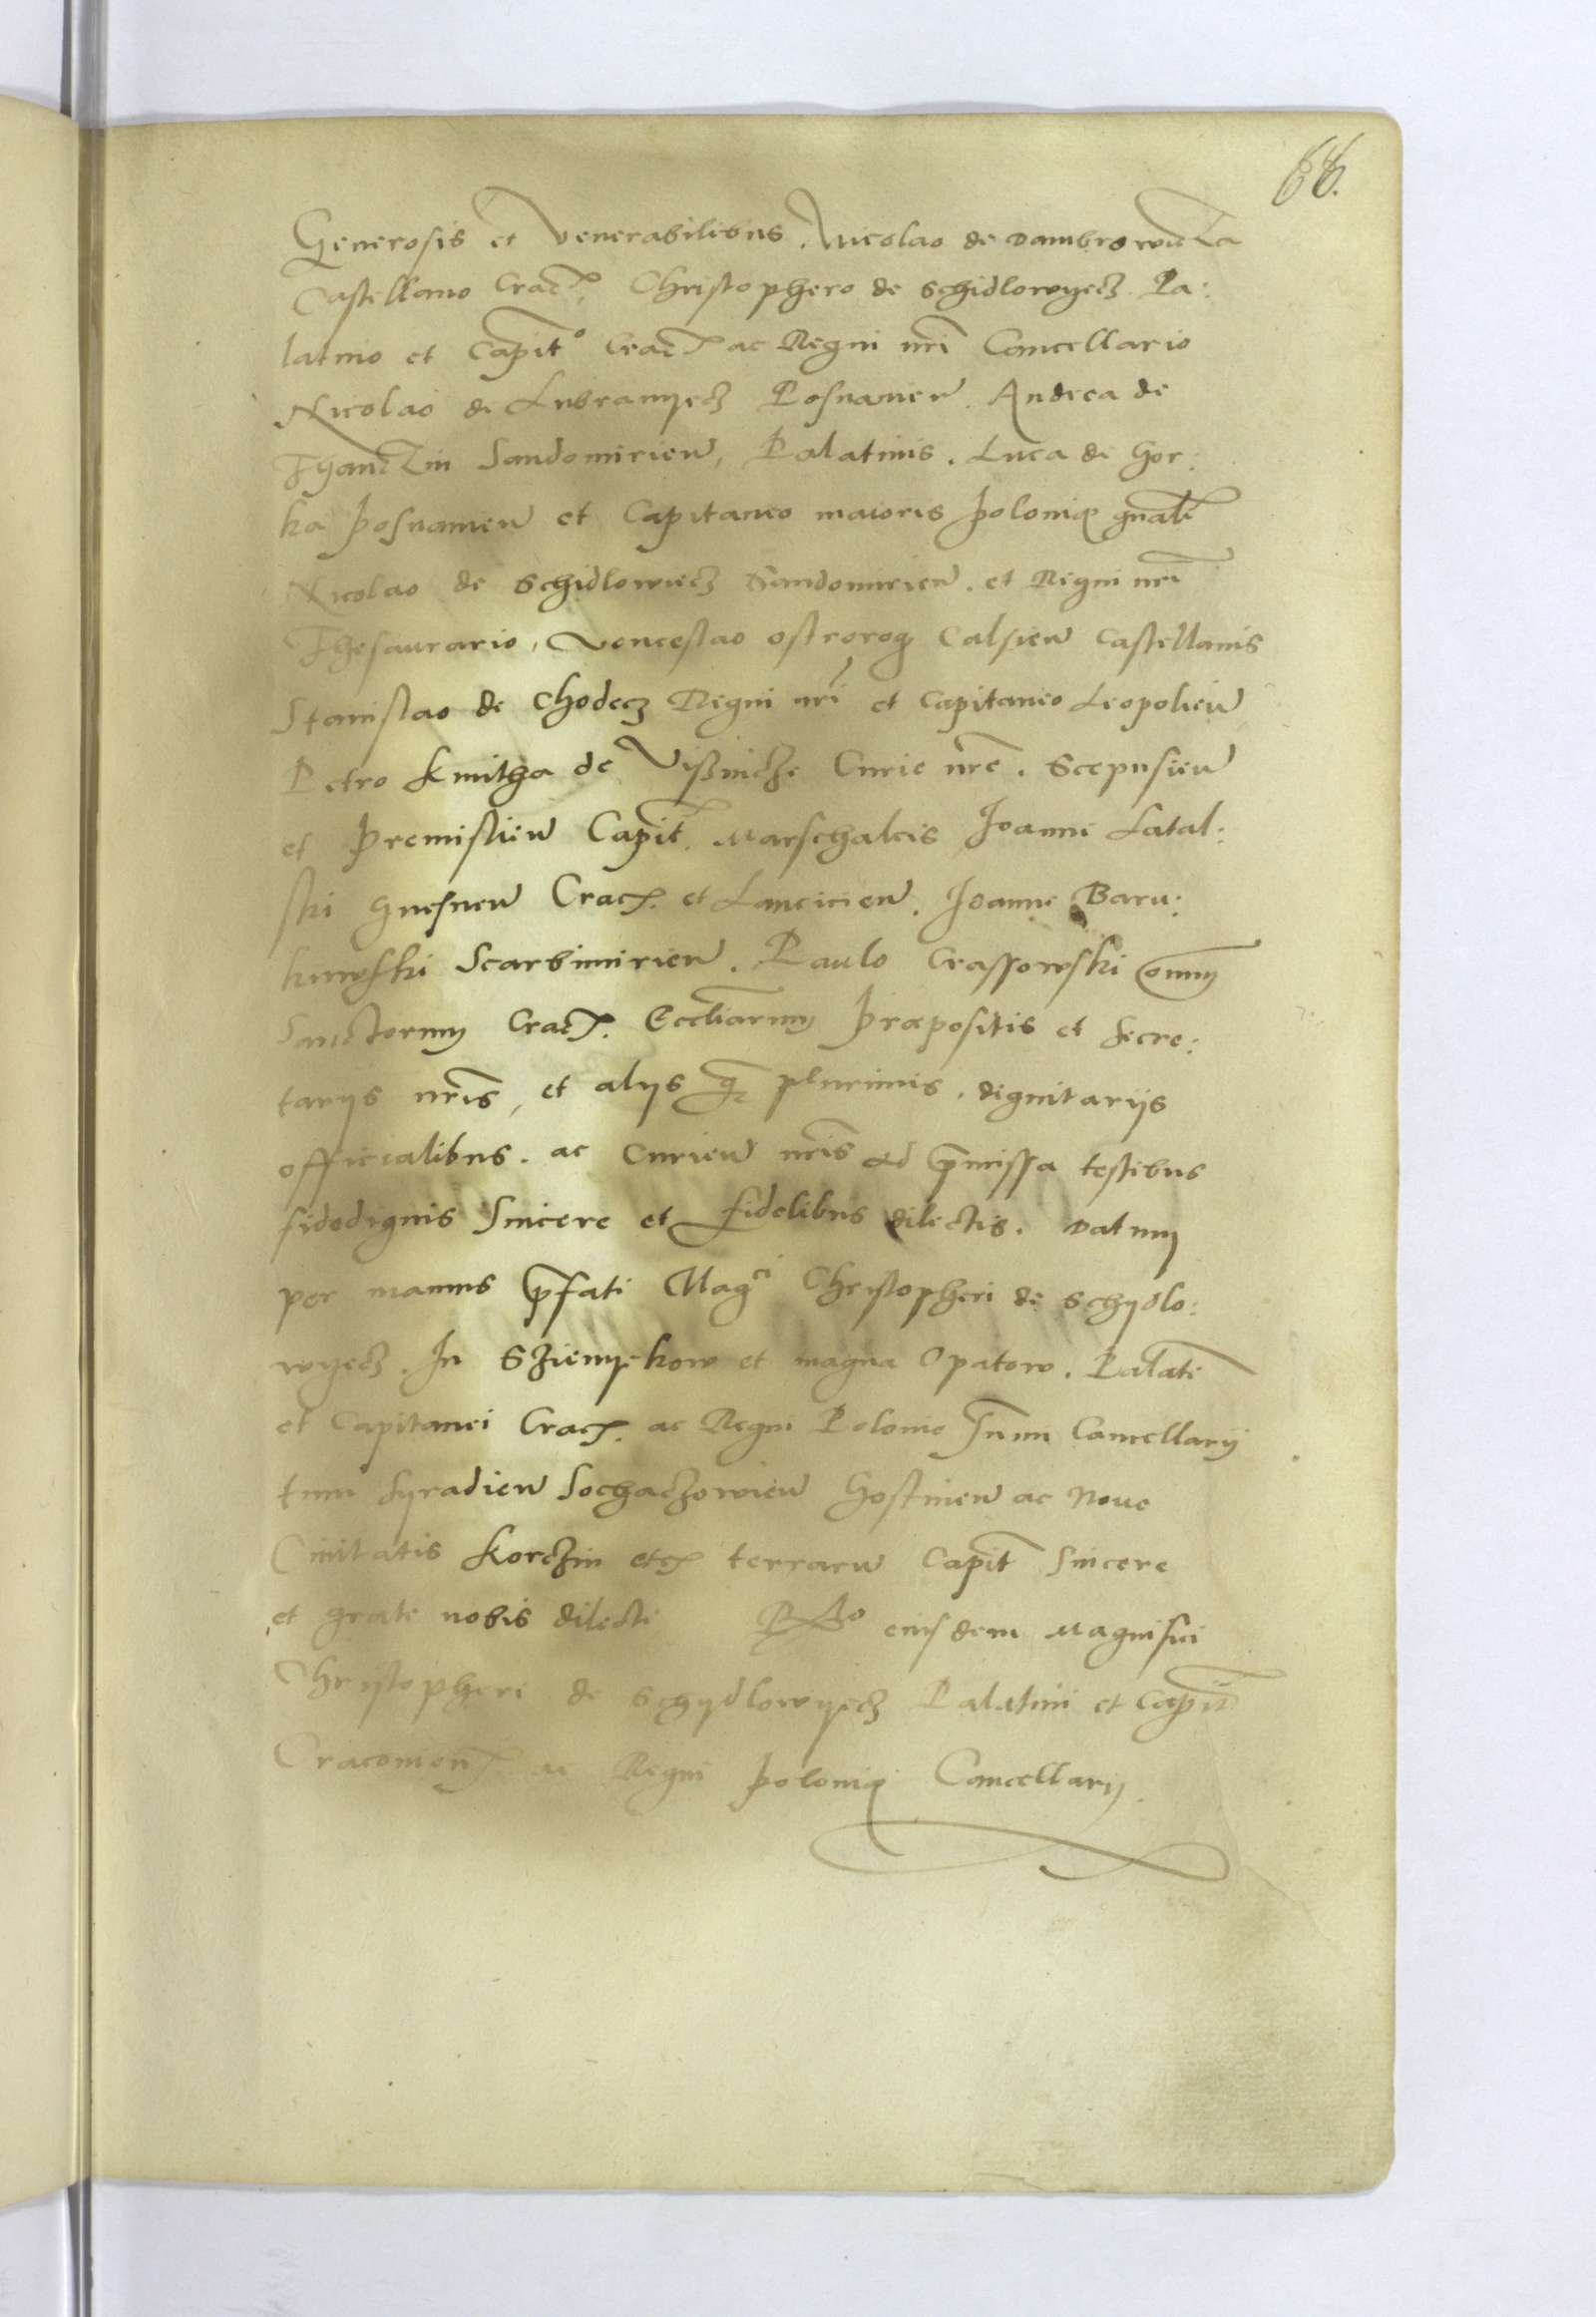 66.
Generosis et venerabilibus. Nicolao de Dambrowicza
Castellano Crac. Christophero de Schidlowyecz Pa:
latino et Capit° Crac. ac Regni nri Cancellario
Nicolao de Lubramyecz Posnanien. Andrea de
Thanczin Sandomirien, Palatinis. Luca de Gor:
ka Posnanien et Capitaneo maioris Polonię gnali
Nicolao de Schidlowiecz Sandomirien. et Regni nri
Thesaurario, Venceslao ostrorog Calsien Castellanis
Stanislao de Chodecz Regni nri et Capitaneo Leopolien
Petro Kmitha de Vißnicze Curie nre. Scepusien
et Premislien Capit. Marschalcis Joanni Latal:
ski Gnesnen Crac. et Lancicien. Joanne Baru:
kuwski Scarbimirien. Paulo Crassowski omnium
Sanctorum Crac. Eccliarum Præpositis et Secre:
tarijs nris, et alijs q plurimis. dignitarijs
officialibus. ac Curien nris ad pmissa testibus
fidedignis Sincere et fidelibus dilectis. Datum
per manus pfati Magci Christopheri de Schydlo:
wyecz. In Szienyekow et magna Opatow. Palati
et Capitanei Crac. ac Regni Polonie Sumi Cancellarij
tum Syradien Sochaczowien Gostinen ac Noue
Ciuitatis Korczin etc terraru Capit Sincere
et grate nobis dilecti Rlo eiusdem Magnifici
Christopheri de Schydlowyecz Palatini et Capit
Cracouien ac Regni Polonię Cancellarij.